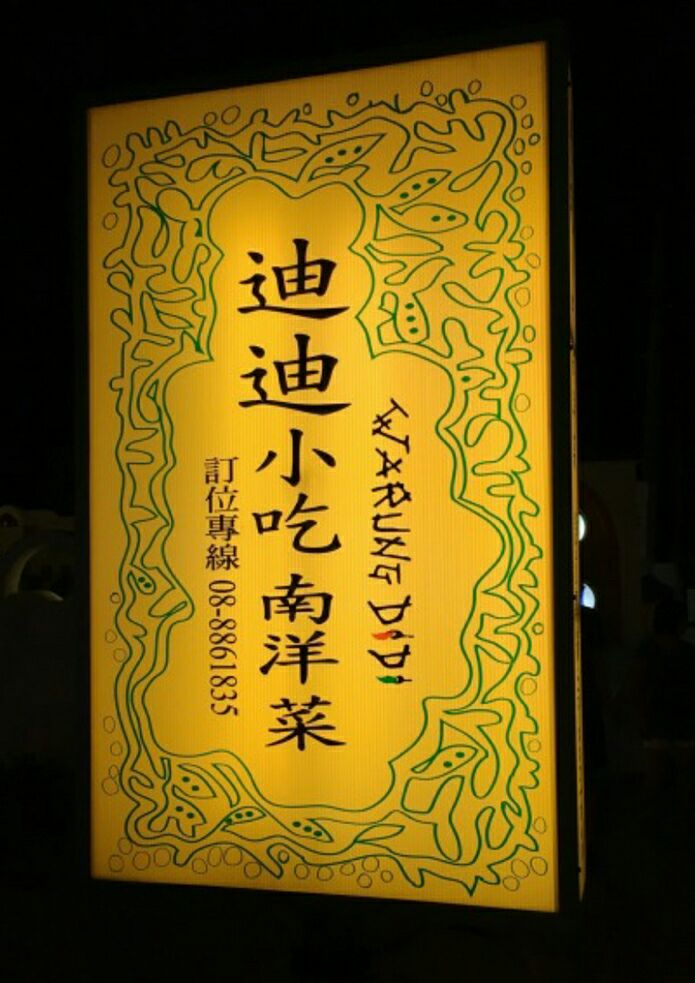 WARUNG DiDi
迪迪小吃南洋菜
訂位專線 08-8861835